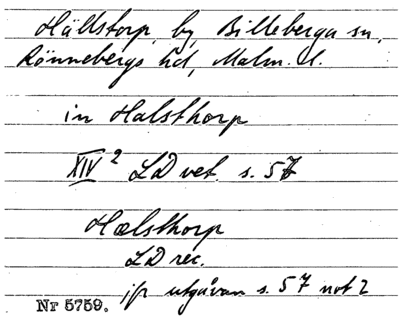 Hällstorp, by, Billeberga sn,
Rönnebergs hd, Malm. l.
in Halsthorp
XIV 2 LD vet. s. 57
Hælsthorp
LD rec.
jfr utgåvan s. 57 not 2
Nr 5759.